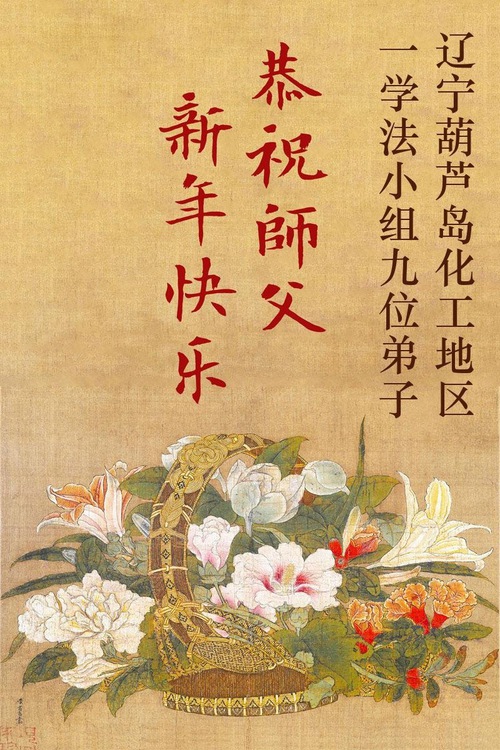 辽宁葫芦岛化工地区
一学法小组九位弟子
恭祝師父
新年快乐